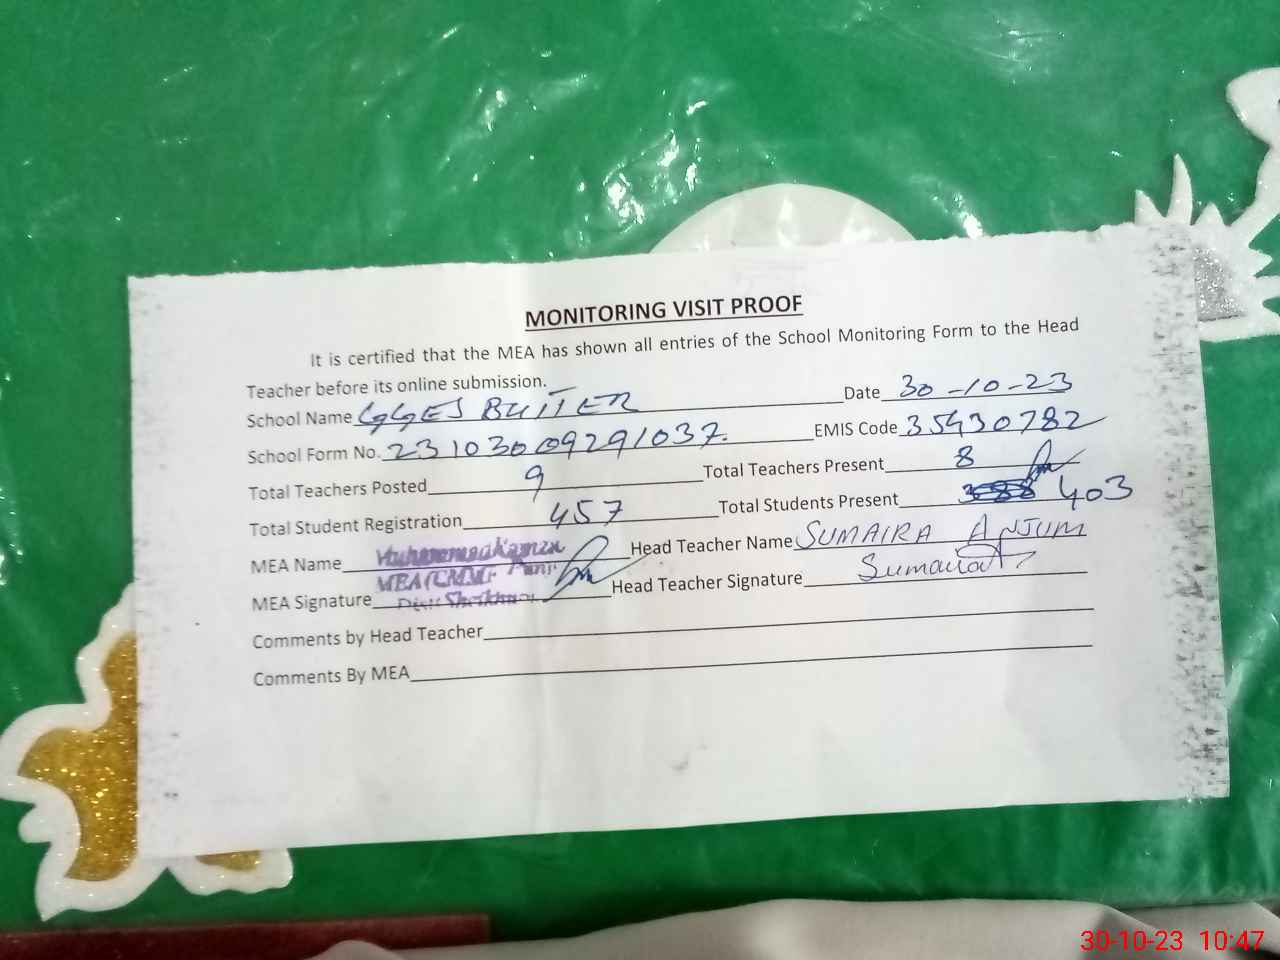 MONITORING VISIT PROOF
It is certified that the MEA has shown all entries of the School Monitoring Form to the Head
Teacher before its online submission.
School Name GGES BUITER Date 30-10-23
School Form No. 23103009291037. EMIS Code 35430782
Total Teachers Posted 9 Total Teachers Present 8
Total Student Registration 457 Total Students Present 403
MEA Name Head Teacher Name SUMAIRA ANJUM
MEA (CMMF
MEA Signature Head Teacher Signature
Comments by Head Teacher
Comments By MEA
30-10-23 10:47